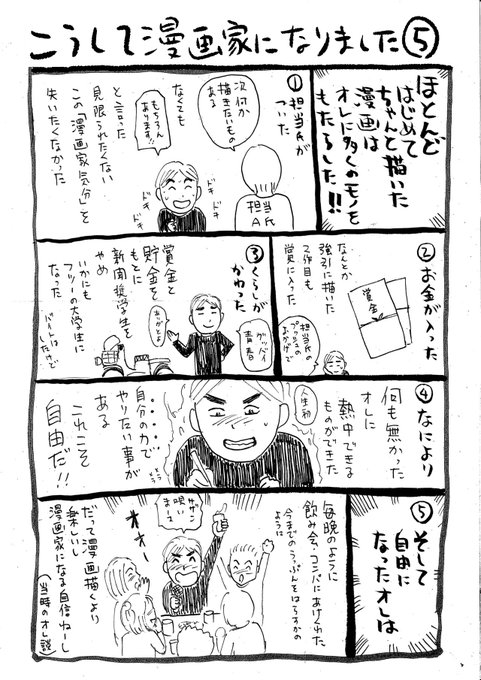 こうして漫画家になりました⑤
ほとんど
はじめて
ちゃんと描いた
漫画は
オレに多くのモノを
もたらした!!
①担当氏が
ついた
次何か
描きたいもの
ある
もちろん
あります!!
なくても
と言った
見限られたくない
この「漫画家気分」を
失いたくなかった
ドキ
ドキ
ドキ
ドキ
担当氏
A
②お金が入った
賞金
なんとか
強引に描いた
2作目も
賞に入った
担当氏の
プッシュの
おかげで
③くらしが
かわった
賞金と
貯金を
もとに
新聞奨学生を
やめ
いかにも
フツーの大学生に
なった
バイトはしたけど
ありがとよ
グッバイ
青春
④なにより
何も無かった
オレに
熱中できる
ものができた
人生初
自分の力で
やりたい事が
ある
これこそ
自由だ!!
⑤
そして
自由に
なったオレは
毎晩のように
飲み会・コンパにあけくれた
今までのうっぷんをはらすかの
ように
サザン
唄い
まーす
オオー
だって漫画描くより
楽しいし
漫画家になる自信ねーし
(当時のオレ談)